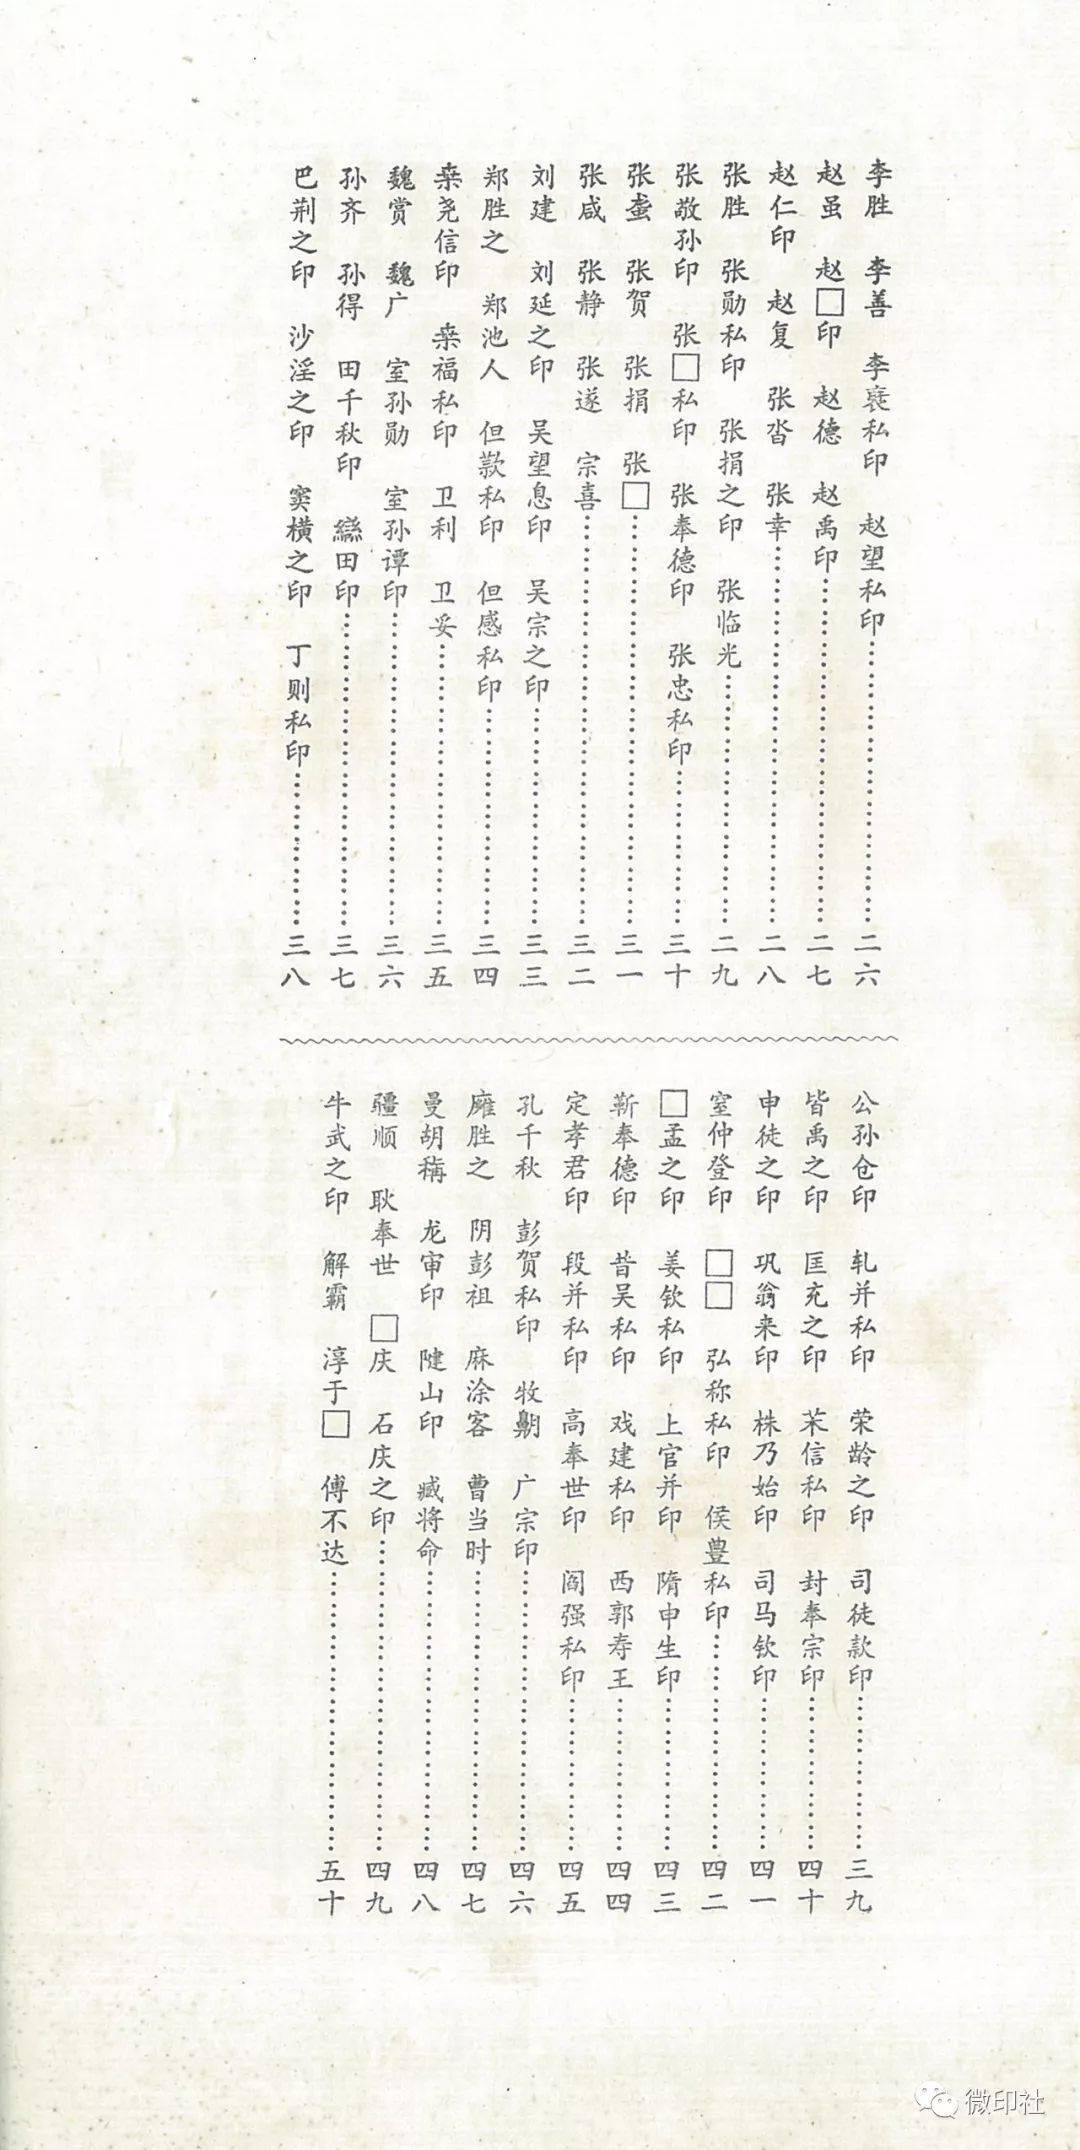 李胜 李善 李襄私印 赵望私印……二六
赵虽 赵□印 赵德 赵禹印……二七
赵仁印 赵复 张沓 张幸……二八
张胜 张勋私印 张捐之印 张临光……二九
张敬孙印 张□私印 张奉德印 张忠私印……三十
张蚕 张贺 张捐 张□……三一
张咸 张静 张遂 宗喜……三二
刘建 刘延之印 吴望息印 吴宗之印……三三
郑胜之 郑池人 但款私印 但感私印……三四
桒尧信印 桒福私印 卫利 卫妥……三五
魏赏 魏广 室孙勋 室孙谭印……三六
孙齐 孙得 田千秋印 田印……三七
巴荆之印 沙淫之印 窦横之印 丁则私印……三八
公孙仓印 轧并私印 荣龄之印 司徒款印……三九
皆禹之印 匡充之印 苿信私印 封奉宗印……四十
申徒之印 巩翁来印 株乃始印 司马钦印……四一
室仲登印 □□ 弘称私印 侯豊私印……四二
□孟之印 姜钦私印 上官并印 隋申生印……四三
靳奉德印 昔吴私印 戏建私印 西郭寿王……四四
定孝君印 段并私印 高奉世印 阎强私印……四五
孔千秋 彭贺私印 牧 广宗印……四六
廱胜之 阴彭祖 麻涂客 曹当时……四七
曼胡稱 龙审印 陡山印 臧将命……四八
疆顺 耿奉世 □庆 石庆之印……四九
牛武之印 解霸 淳于□ 傅不达……五十
微印社